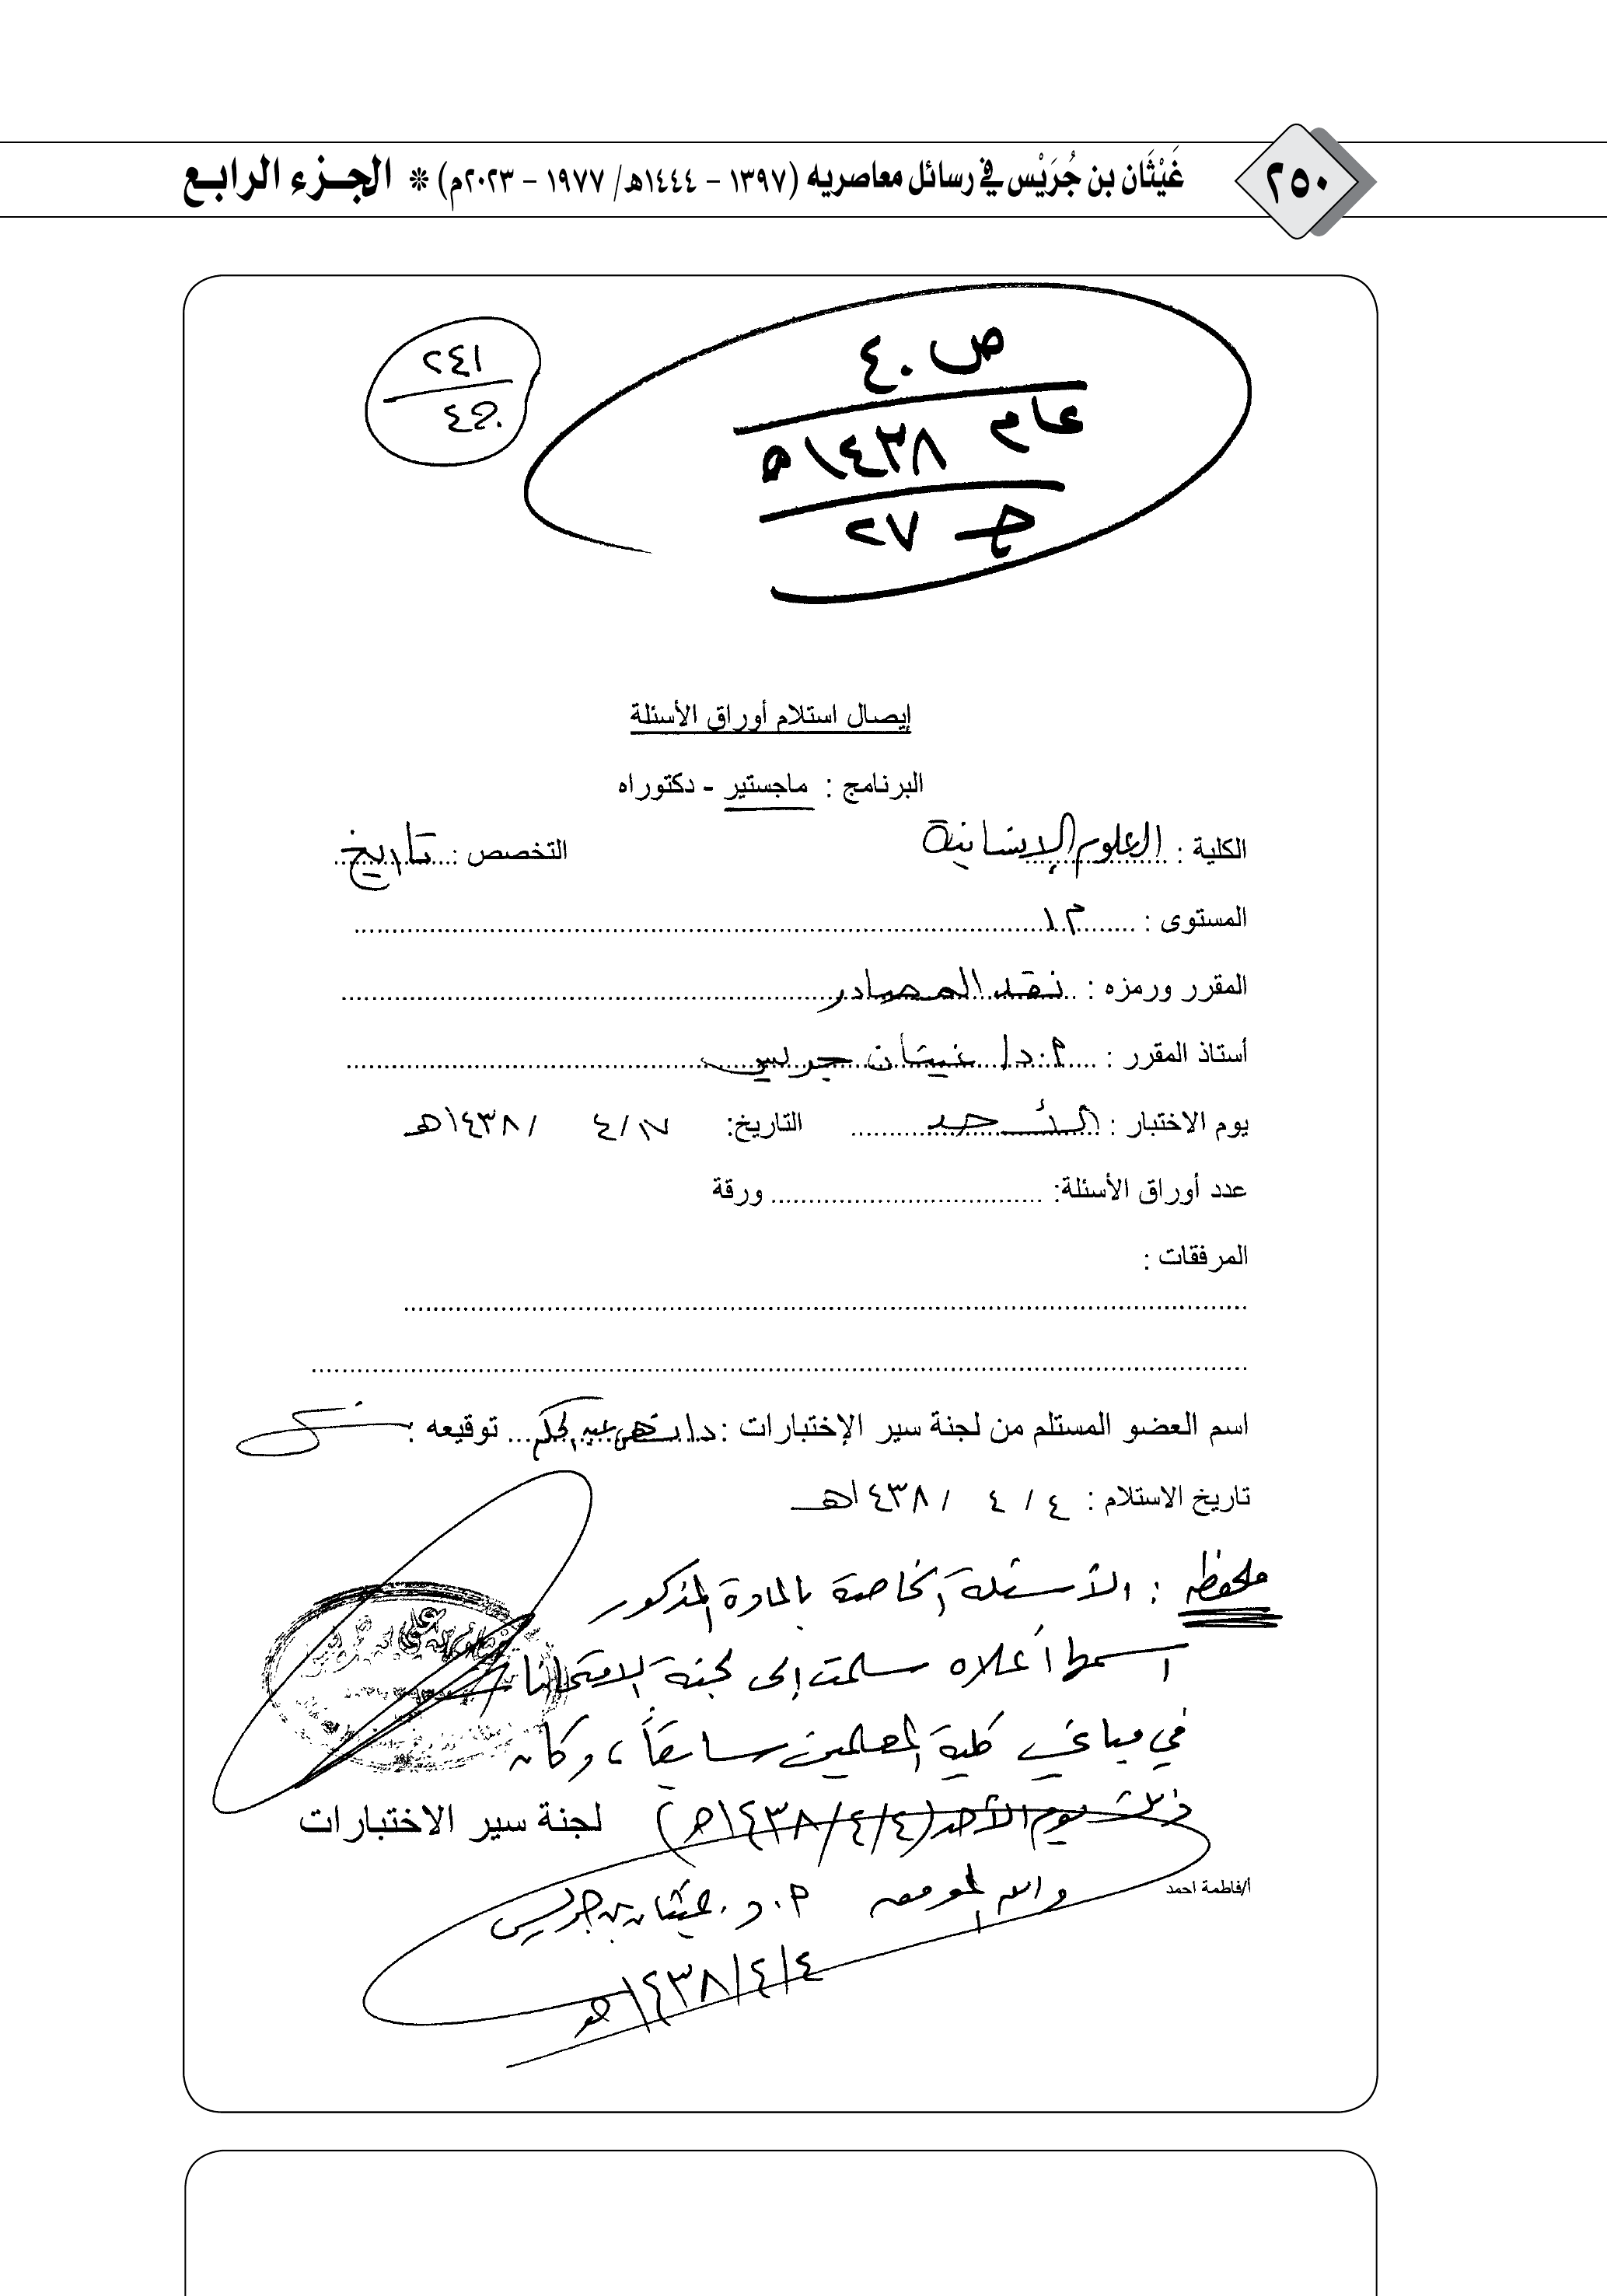 ٢٥٠
غَيْثَان بن جُرَيْس في رسائل معاصريه (١٣٩٧ - ١٤٤٤هـ/ ١٩٧٧ - ٢٠٢٣م) * الجزء الرابع
ص ٤٠
عام ١٤٣٨ه
جـ ٢٧
٢٤١
إيصال استلام أوراق الأسئلة
البرنامج : ماجستير - دكتوراه
الكلية : العلوم الإنسانية التخصص : تاريخ
المستوى : م١
المقرر ورمزه : نقد المصادر
أستاذ المقرر : أ.د/ غيثان جريس
يوم الاختبار : الأحد التاريخ: ١٧/ ٤ / ١٤٣٨هـ
عدد أوراق الأسئلة: ورقة
المرفقات :
اسم العضو المستلم من لجنة سير الإختبارات : د/ توقيعه :
تاريخ الاستلام : ٤ / ٤ / ١٤٣٨هـ
ملحظه : الأسئلة الخاصة بالمادة المذكور
اسمها أعلاه سلمت إلى لجنة الامتحانات
في مباني كلية المعلمين سابقاً، وكان
ذلك يوم الأحد (٤/٤/١٤٣٨هـ)
لجنة سير الاختبارات
والله الموفق أ.د. غيثان بن جريس
أ/فاطمة احمد
٤/٤/١٤٣٨هـ